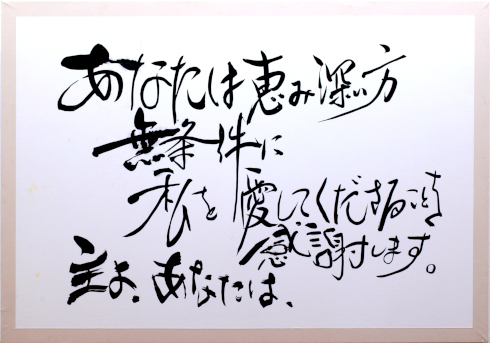 あなたは恵み深い方
無条件に
私を愛してくださる事を
感謝します。
主よ、あなたは、